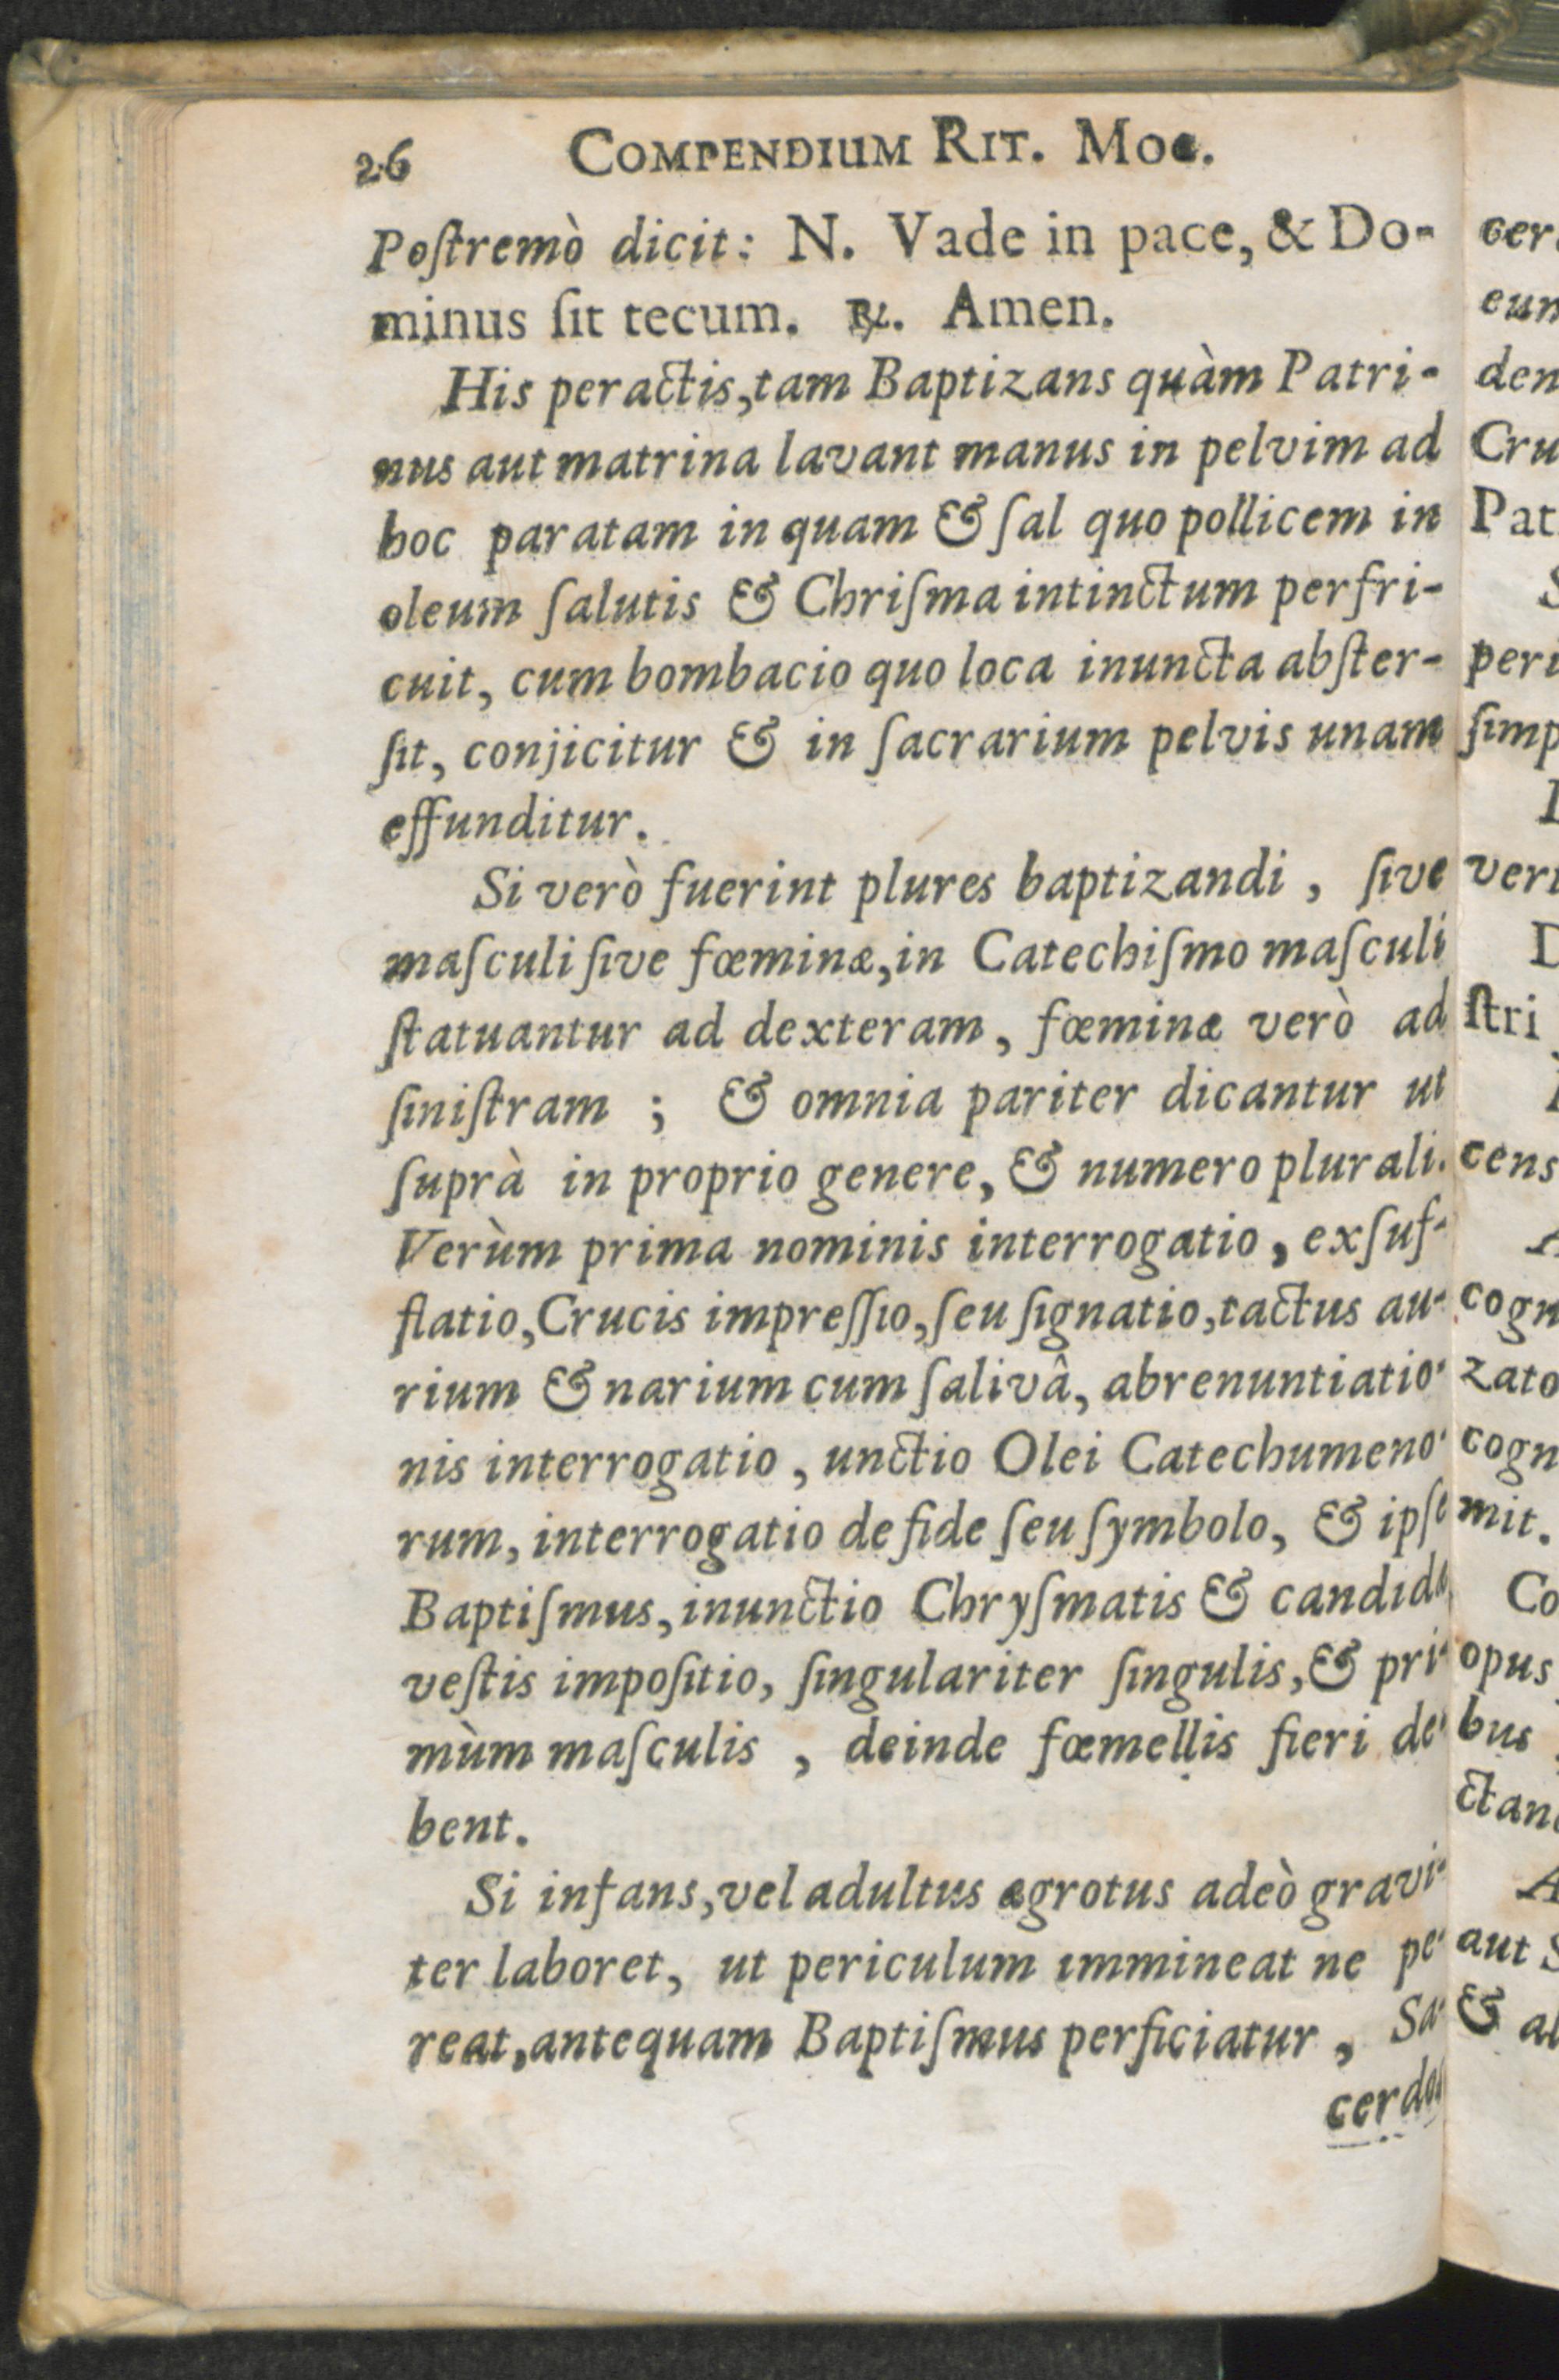 26 COMPENDIUM RIT. MOG.
Poſtremò dicit: N. Vade in pace, & Do-
minus ſit tecum. ℟. Amen.
His peractis, tam Baptizans quàm Patri-
nus aut matrina lavant manus in pelvim ad
hoc paratam in quam & ſal quo pollicem in
oleum ſalutis & Chriſma intinctum perfri-
cuit, cum bombacio quo loca inuncta abſter-
ſit, conjicitur & in ſacrarium pelvis unam
effunditur.
Si verò fuerint plures baptizandi, ſive
maſculi ſive fœminæ, in Catechiſmo maſculi
ſtatuantur ad dexteram, fœminæ verò ad
ſiniſtram; & omnia pariter dicantur ut
ſuprà in proprio genere, & numero plurali.
Verùm prima nominis interrogatio, exſuf-
flatio, Crucis impreſſio, ſeu ſignatio, tactus au-
rium & narium cum ſalivâ, abrenuntiatio-
nis interrogatio, unctio Olei Catechumeno-
rum, interrogatio de fide ſeu ſymbolo, & ipſe
Baptiſmus, inunctio Chryſmatis & candidæ
veſtis impoſitio, ſingulariter ſingulis, & pri-
mùm maſculis, deinde fœmellis fieri de-
bent.
Si infans, vel adultus ægrotus adeò gravi-
ter laboret, ut periculum immineat ne pe-
reat, antequam Baptiſmus perficiatur, Sa-
cerdos